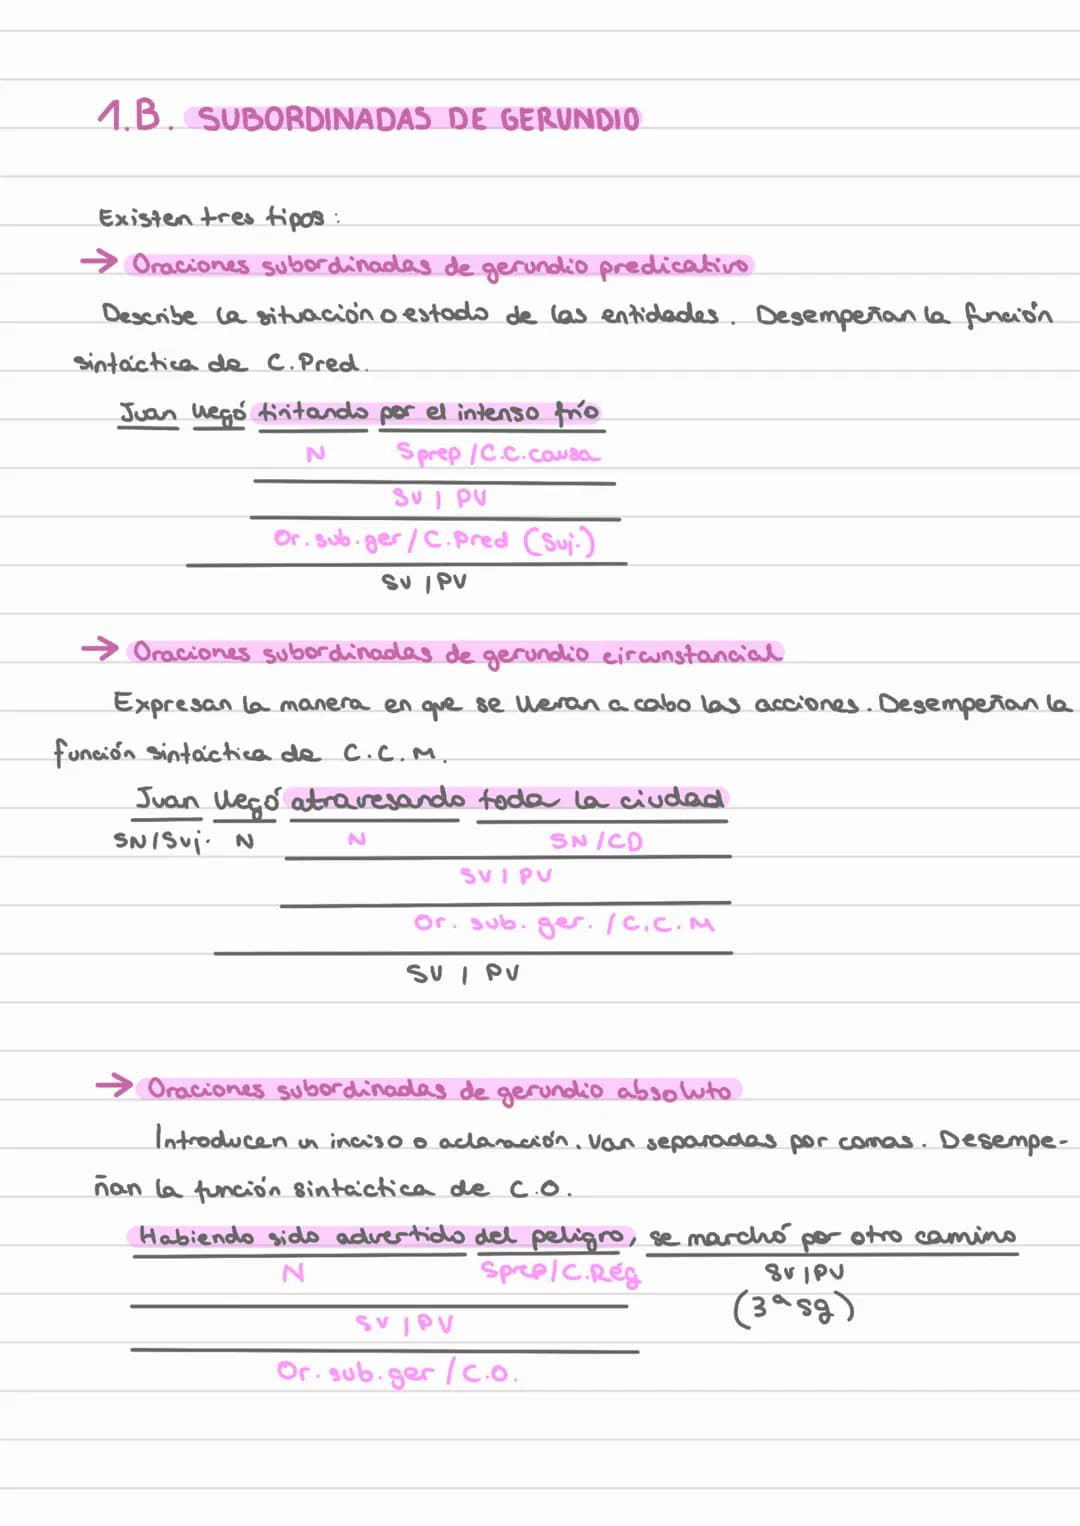 1.B. SUBORDINADAS DE GERUNDIO
Existen tres tipos:
→ Oraciones subordinadas de gerundio predicativo
Describe la situación o estado de las entidades. Desempeñan la función
sintáctica de C.Pred.
Juan llegó tiritando por el intenso frío
N Sprep/C.C.causa
SV | PV
Or.sub.ger/C.Pred (Suj.)
SV | PV
→ Oraciones subordinadas de gerundio circunstancial
Expresan la manera en que se llevan a cabo las acciones. Desempeñan la
función sintáctica de C.C.M.
Juan llegó atravesando toda la ciudad
SN/Suj. N N SN/CD
SV | PV
Or. sub. ger. /C.C.M
SV | PV
→ Oraciones subordinadas de gerundio absoluto
Introducen un inciso o aclaración. Van separadas por comas. Desempe-
ñan la función sintáctica de C.O.
Habiendo sido advertido del peligro, se marchó por otro camino
N Sprep/C.Rég SV | PV
(3ª sg)
SV | PV
Or.sub.ger/C.O.